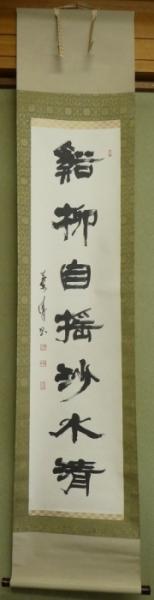 谿柳自揺沙水清